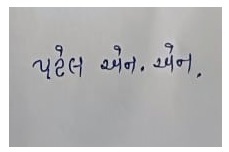 પટેલ એન. એન.